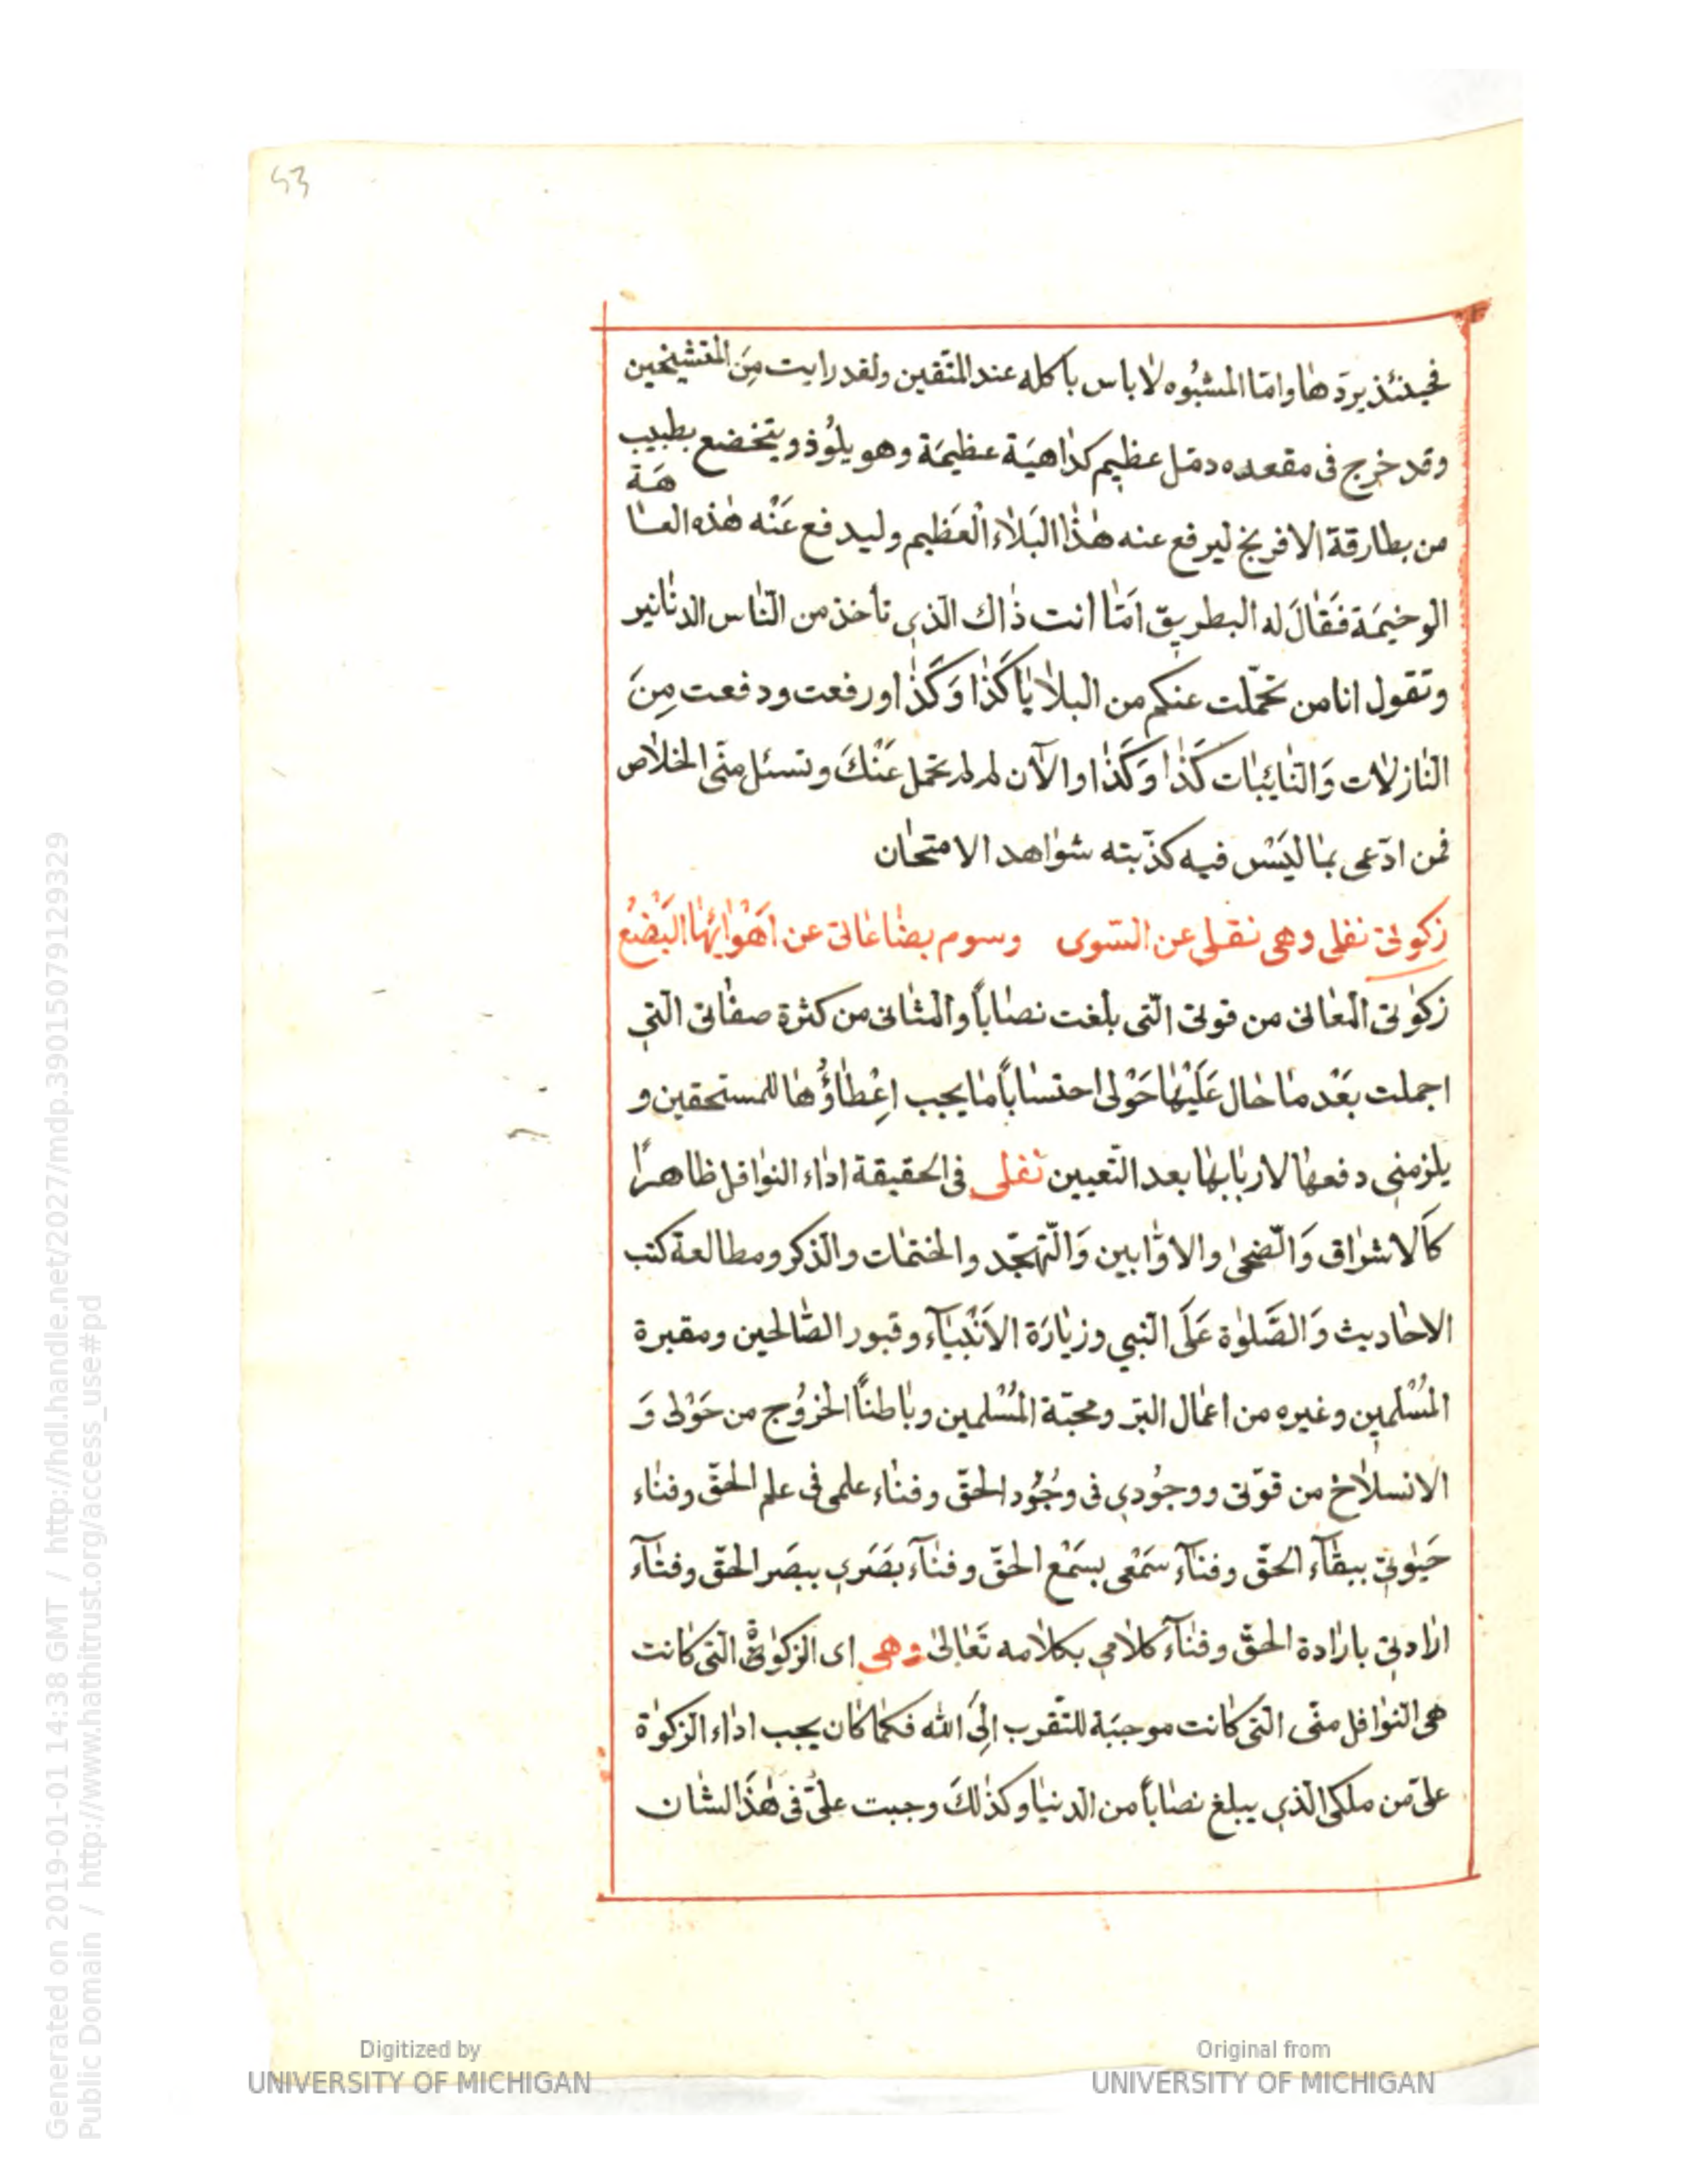 53
فحينئذ يردّها وامّا المشبُوه لا باس باكله عند المتّقين ولقد رايت مِنَ المتشيّخين
وقد خرج فى مقعده دمّل عظيم كداهيَة عظيمَة وهو يلُوذ ويتخضع بطبيب
من بطارقة الافرنج ليرفع عنه هٰذا البَلاٰء الْعَظيم وليدفع عَنْه هٰذه العاهَة
الوخيمَة فَقٰالَ له البطريق اَمّا انت ذٰاك الّذي تأخذ من النّاس الدنانير
وتقول انا من تحمّلت عنكم من البلاٰيا كَذٰا وَكَذٰا ورفعت ودفعت مِنَ
النّازلاٰت وَالنّايبٰات كَذٰا وَكَذٰا والآن لم لم تحمل عَنْكَ وتسئل منّى الخلاٰص
فمن ادّعى بمٰا ليَسْ فيه كذّبته شوٰاهد الامتحٰان
زكوتى نفلى وهى نقلى عن السّوى وسوم بضٰاعٰاتى عن اَهْوٰائِهٰا البَضْعُ
زكوٰتى المعٰانى من قوتى الّتى بلغت نصٰاباً والمثٰانى من كثرة صفٰاتى الّتي
اجملت بَعْد مٰا حٰال عَلَيْهٰا حَوْلى احتسٰاباً مٰا يجب اِعْطٰاؤُهٰا للمستحقين و
يلزمني دفعهٰا لاربٰابهٰا بعد التّعيين نفلى فى الحقيقة اداٰء النوٰافل ظاهراً
كَالاشرٰاق وَالضّحىٰ والاوّٰابين وَالتّهجّد والختمٰات والذّكر ومطالعة كتب
الاحٰاديث وَالصَّلوٰة عَلَى النّبي وزيٰارَة الاَنْبيٰآء وقبور الصّٰالحين ومقبرة
المُسْلمين وغيره من اعمٰال البّر ومحبّة المُسْلمين وبٰاطناً الخرُوج من حَوْلى وَ
الانسلاٰخ من قوّتى ووجُودي فى وُجُود الحقّ وفنٰاء علمى فى علم الحقّ وفنٰاء
حَيٰوتىٰ ببقٰآء الحقّ وفنٰآء سَمْعى بسَمْع الحقّ وفنٰآء بَصَري ببصَر الحقّ وفنٰآء
ارٰادتى بارٰادة الحقّ وفنٰآء كلاٰمي بكلاٰمه تَعٰالىٰ وهى اى الزكوٰة الّتى كٰانت
هى النّوٰافل منّى الّتى كٰانت موجبَة للتّقرب اِلَى الله فكمٰا كٰان يجب ادٰاء الزكوٰة
علىّ من ملكى الّذي يبلغ نصٰاباً من الدنيٰا وكذٰلكَ وجبت علىّ فى هٰذَا لشٰان
Digitized by
UNIVERSITY OF MICHIGAN
Original from
UNIVERSITY OF MICHIGAN
Generated on 2019-01-01 14:38 GMT / http://hdl.handle.net/2027/mdp.39015079129329
Public Domain / http://www.hathitrust.org/access_use#pd